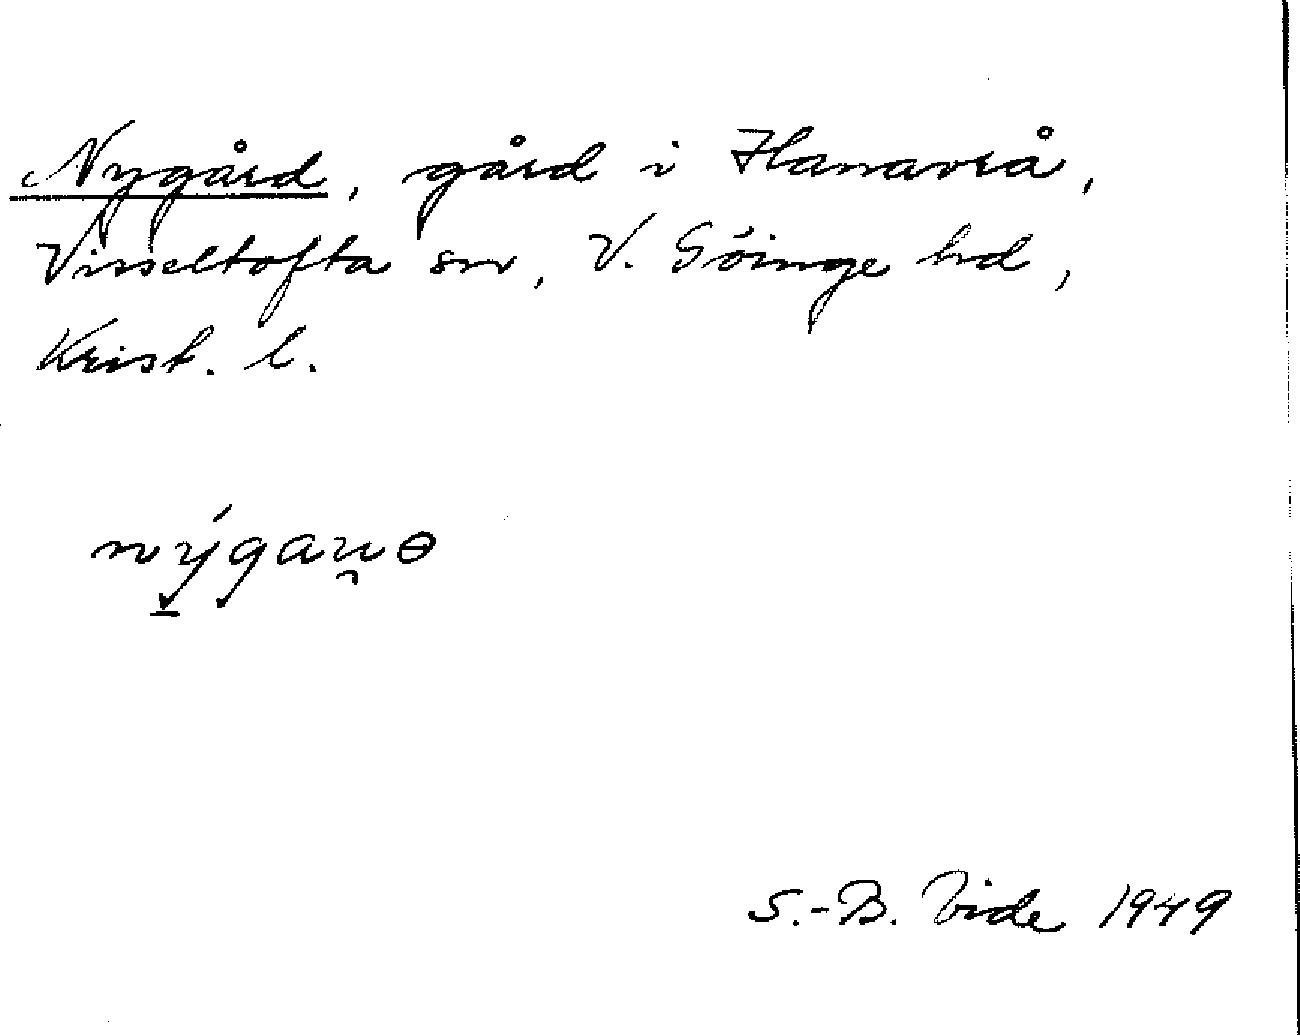 Nygård, gård i Hanavrå,
Visseltofta sn, V. Göinge hd,
Krist. l.
nýgaṵɵ
S.-B. Vide 1949